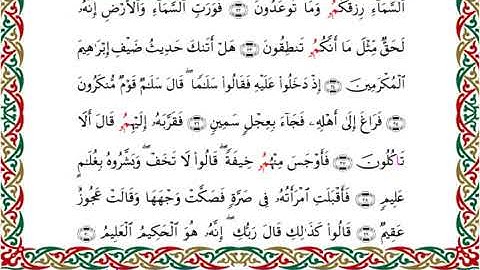 ٱلسَّمَآءِ رِزۡقُكُمُۥ وَمَا تُوعَدُونَ ۝ فَوَرَبِّ ٱلسَّمَآءِ وَٱلۡأَرۡضِ إِنَّهُۥ
لَحَقّٞ مِّثۡلَ مَآ أَنَّكُمُۥ تَنطِقُونَ ۝ هَلۡ أَتَىٰكَ حَدِيثُ ضَيۡفِ إِبۡرَٰهِيمَ
ٱلۡمُكۡرَمِينَ ۝ إِذۡ دَخَلُواْ عَلَيۡهِ فَقَالُواْ سَلَٰمٗاۖ قَالَ سَلَٰمٞ قَوۡمٞ مُّنكَرُونَ
۝ فَرَاغَ إِلَىٰٓ أَهۡلِهِۦ فَجَآءَ بِعِجۡلٖ سَمِينٖ ۝ فَقَرَّبَهُۥٓ إِلَيۡهِمُۥ قَالَ أَلَا
تَاكُلُونَ ۝ فَأَوۡجَسَ مِنۡهُمُۥ خِيفَةٗۖ قَالُواْ لَا تَخَفۡۖ وَبَشَّرُوهُ بِغُلَٰمٍ
عَلِيمٖ ۝ فَأَقۡبَلَتِ ٱمۡرَأَتُهُۥ فِي صَرَّةٖ فَصَكَّتۡ وَجۡهَهَا وَقَالَتۡ عَجُوزٌ
عَقِيمٞ ۝ قَالُواْ كَذَٰلِكِ قَالَ رَبُّكِۖ إِنَّهُۥ هُوَ ٱلۡحَكِيمُ ٱلۡعَلِيمُ ۝